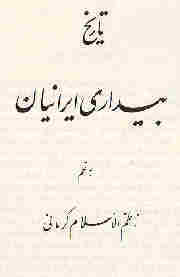 تاریخ
بیداری ایرانیان
بقلم
ناظم الاسلام کرمانی